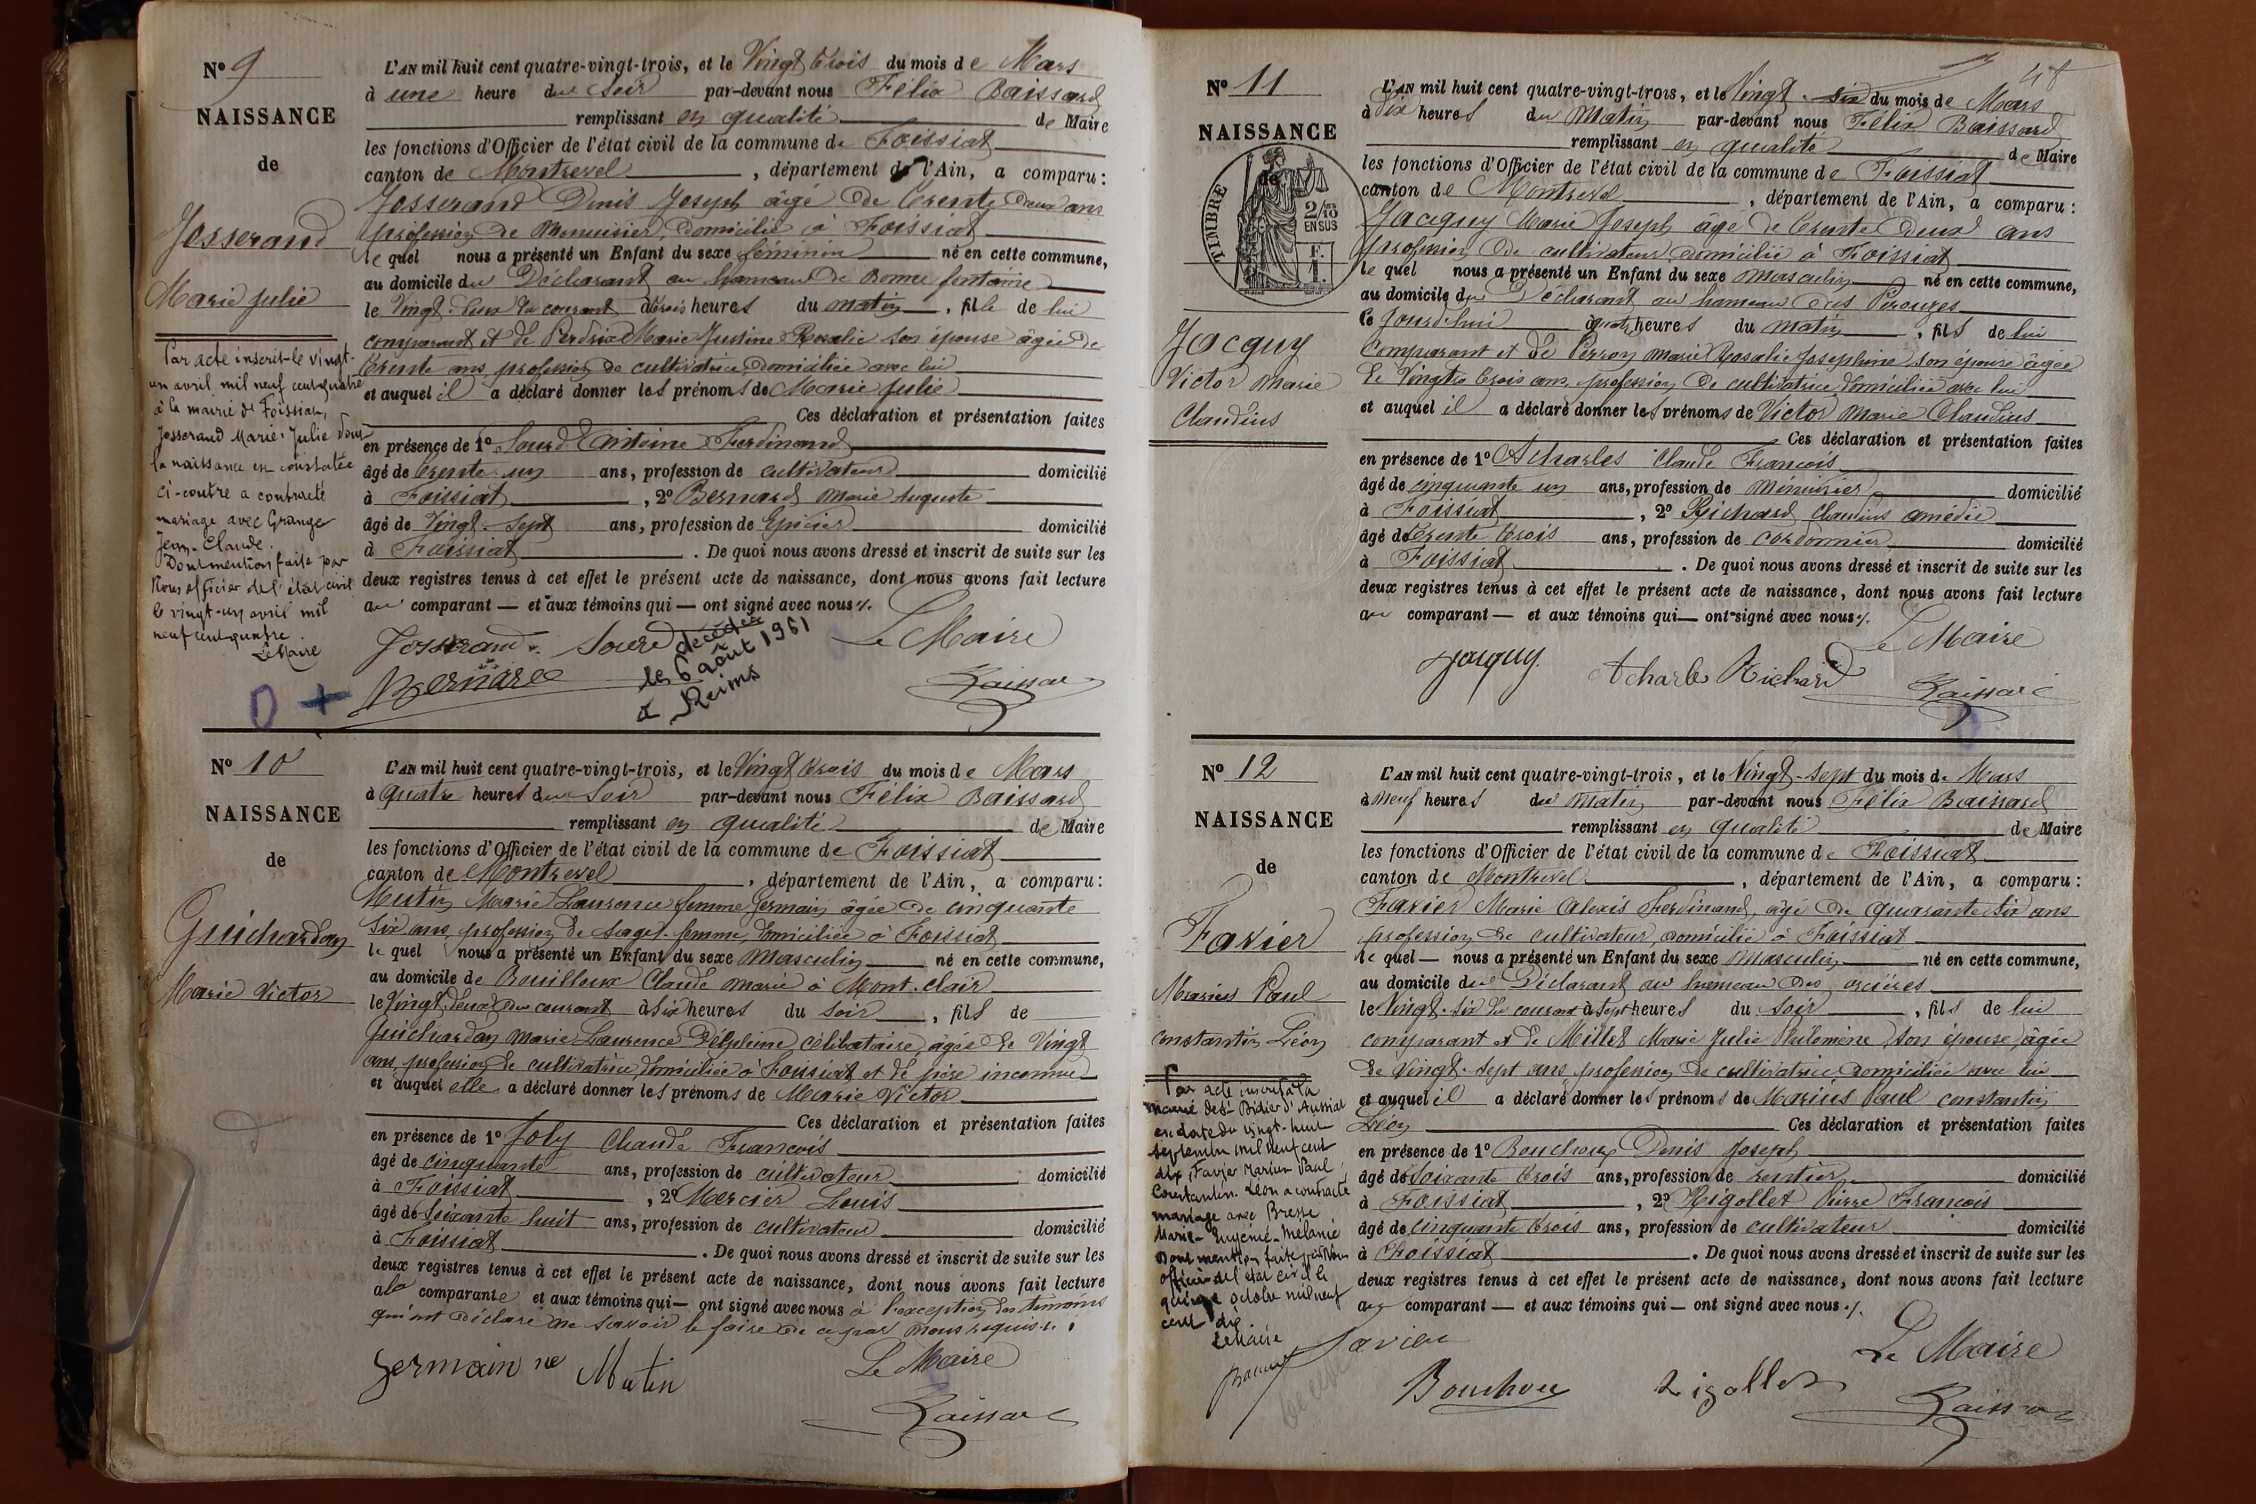 No 9
NAISSANCE
de
Josserand
Marie Julie
Par acte inscrit le vingt-
un avril mil neuf cent quatre
à la mairie de Foissiat,
Josserand Marie-Julie dont
la naissance est constatée
ci-contre a contracté
mariage avec Grange
Jean-Claude.
Dont mention faite par
Nous officier de l'état civil
le vingt-un avril mil
neuf cent quatre.
Le Maire
L'AN mil huit cent quatre-vingt-trois, et le Vingt trois du mois de Mars
à une heure du soir par-devant nous Félix Baissard
remplissant en qualité de Maire
les fonctions d'Officier de l'état civil de la commune de Foissiat
canton de Montrevel, département de l'Ain, a comparu:
Josserand Denis Joseph âgé de trente deux ans
profession de Menuisier, domicilié à Foissiat
le quel nous a présenté un Enfant du sexe féminin né en cette commune,
au domicile du Déclarant au hameau de Bonne fontaine
le Vingt-deux du courant à trois heures du matin, fille de lui
comparant et de Perdrix Marie Justine Rosalie son épouse âgée de
trente ans, profession de cultivatrice, domiciliée avec lui
et auquel il a déclaré donner les prénoms de Marie Julie
Ces déclaration et présentation faites
en présence de 1º Sourd Antoine Ferdinand
âgé de trente-un ans, profession de cultivateur domicilié
à Foissiat, 2º Bernard Marie Auguste
âgé de Vingt-sept ans, profession de Epicier domicilié
à Foissiat. De quoi nous avons dressé et inscrit de suite sur les
deux registres tenus à cet effet le présent acte de naissance, dont nous avons fait lecture
au comparant — et aux témoins qui — ont signé avec nous ./.
Josserand Sourd Le Maire
Bernard Baissard
décédée
le 6 août 1961
à Reims
No 10
NAISSANCE
de
Guichardan
Marie Victor
L'AN mil huit cent quatre-vingt-trois, et le Vingt trois du mois de Mars
à quatre heures du soir par-devant nous Félix Baissard
remplissant en qualité de Maire
les fonctions d'Officier de l'état civil de la commune de Foissiat
canton de Montrevel, département de l'Ain, a comparu:
Mutin Marie Laurence femme Germain âgée de cinquante
six ans, profession de sage-femme, domiciliée à Foissiat
le quel nous a présenté un Enfant du sexe Masculin né en cette commune,
au domicile de Bouilloux Claude Marie à Mont-clair
le Vingt deux du courant à six heures du soir, fils de
Guichardan Marie Laurence Delphine célibataire, âgée de Vingt
ans, profession de cultivatrice, domiciliée à Foissiat et de père inconnu
et auquel elle a déclaré donner les prénoms de Marie Victor
Ces déclaration et présentation faites
en présence de 1º Joly Claude François
âgé de cinquante ans, profession de cultivateur domicilié
à Foissiat, 2º Mercier Louis
âgé de Soixante huit ans, profession de cultivateur domicilié
à Foissiat. De quoi nous avons dressé et inscrit de suite sur les
deux registres tenus à cet effet le présent acte de naissance, dont nous avons fait lecture
à la comparante et aux témoins qui — ont signé avec nous à l'exception des témoins
qui ont déclaré ne savoir le faire de ce par nous requis ./.
Germain née Mutin Le Maire
Baissard
No 11
48
NAISSANCE
de
TIMBRE
2/10 EN SUS
F.
1
Jacquy
Victor Marie
Claudius
L'AN mil huit cent quatre-vingt-trois, et le Vingt-six du mois de Mars
à dix heures du Matin par-devant nous Félix Baissard
remplissant en qualité de Maire
les fonctions d'Officier de l'état civil de la commune de Foissiat
canton de Montrevel, département de l'Ain, a comparu:
Jacquy Marie Joseph âgé de trente deux ans
profession de cultivateur, domicilié à Foissiat
le quel nous a présenté un Enfant du sexe masculin né en cette commune,
au domicile du Déclarant au hameau des Pérouges
le Jourd'hui à quatre heures du matin, fils de lui
comparant et de Perron Marie Rosalie Joséphine, son épouse âgée
de Vingt trois ans, profession de cultivatrice, domiciliée avec lui
et auquel il a déclaré donner les prénoms de Victor Marie Claudius
Ces déclaration et présentation faites
en présence de 1º Acharles Claude François
âgé de cinquante un ans, profession de Ménuisier domicilié
à Foissiat, 2º Richard Claudius Amédée
âgé de trente trois ans, profession de cordonnier domicilié
à Foissiat. De quoi nous avons dressé et inscrit de suite sur les
deux registres tenus à cet effet le présent acte de naissance, dont nous avons fait lecture
au comparant — et aux témoins qui — ont signé avec nous ./.
Le Maire
Jacquy Acharles Richard Baissard
No 12
NAISSANCE
de
Favier
Marius Paul
Constantin Léon
Par acte inscrit à la
mairie de St Didier d'Aussiat
en date du vingt-huit
septembre mil neuf cent
dix, Favier Marius Paul
Constantin Léon a contracté
mariage avec Bresse
Marie-Eugénie-Mélanie
Dont mention faite par Nous
officier de l'état civil le
quinze octobre mil neuf
cent dix
Le Maire
L'AN mil huit cent quatre-vingt-trois, et le Vingt-sept du mois de Mars
à neuf heures du matin par-devant nous Félix Baissard
remplissant en qualité de Maire
les fonctions d'Officier de l'état civil de la commune de Foissiat
canton de Montrevel, département de l'Ain, a comparu:
Favier Marie Alexis Ferdinand, âgé de quarante six ans
profession de cultivateur, domicilié à Foissiat
le quel — nous a présenté un Enfant du sexe masculin né en cette commune,
au domicile du Déclarant au hameau des
le Vingt-six du courant à sept heures du soir, fils de lui
comparant et de Millet Marie Julie Philomène, son épouse, âgée
de Vingt-sept ans, profession de cultivatrice, domiciliée avec lui
et auquel il a déclaré donner les prénoms de Marius Paul Constantin
Léon Ces déclaration et présentation faites
en présence de 1º Bouchoux Denis Joseph
âgé de soixante trois ans, profession de rentier domicilié
à Foissiat, 2º Rigollet Pierre François
âgé de cinquante trois ans, profession de cultivateur domicilié
à Foissiat. De quoi nous avons dressé et inscrit de suite sur les
deux registres tenus à cet effet le présent acte de naissance, dont nous avons fait lecture
au comparant — et aux témoins qui — ont signé avec nous ./.
Favier Le Maire
Bouchoux Rigollet Baissard